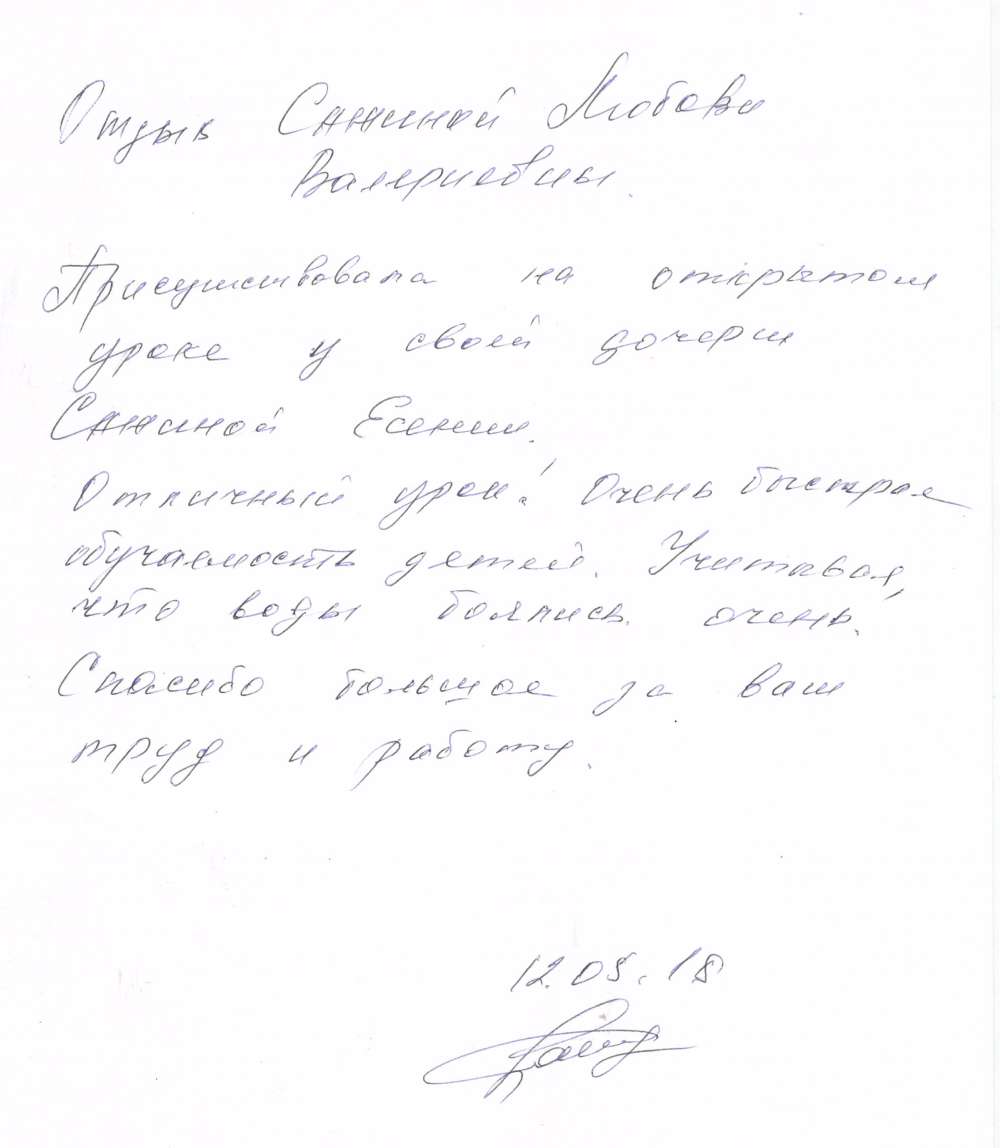 Отзыв Сажиной Любови
Валериевны.
Присутствовала на открытом
уроке у своей дочери
Сажиной Есении.
Отличный урок! Очень быстрая
обучаемость детей. Учитывая,
что воды боялись очень!
Спасибо большое за ваш
труд и работу.
12.05.18